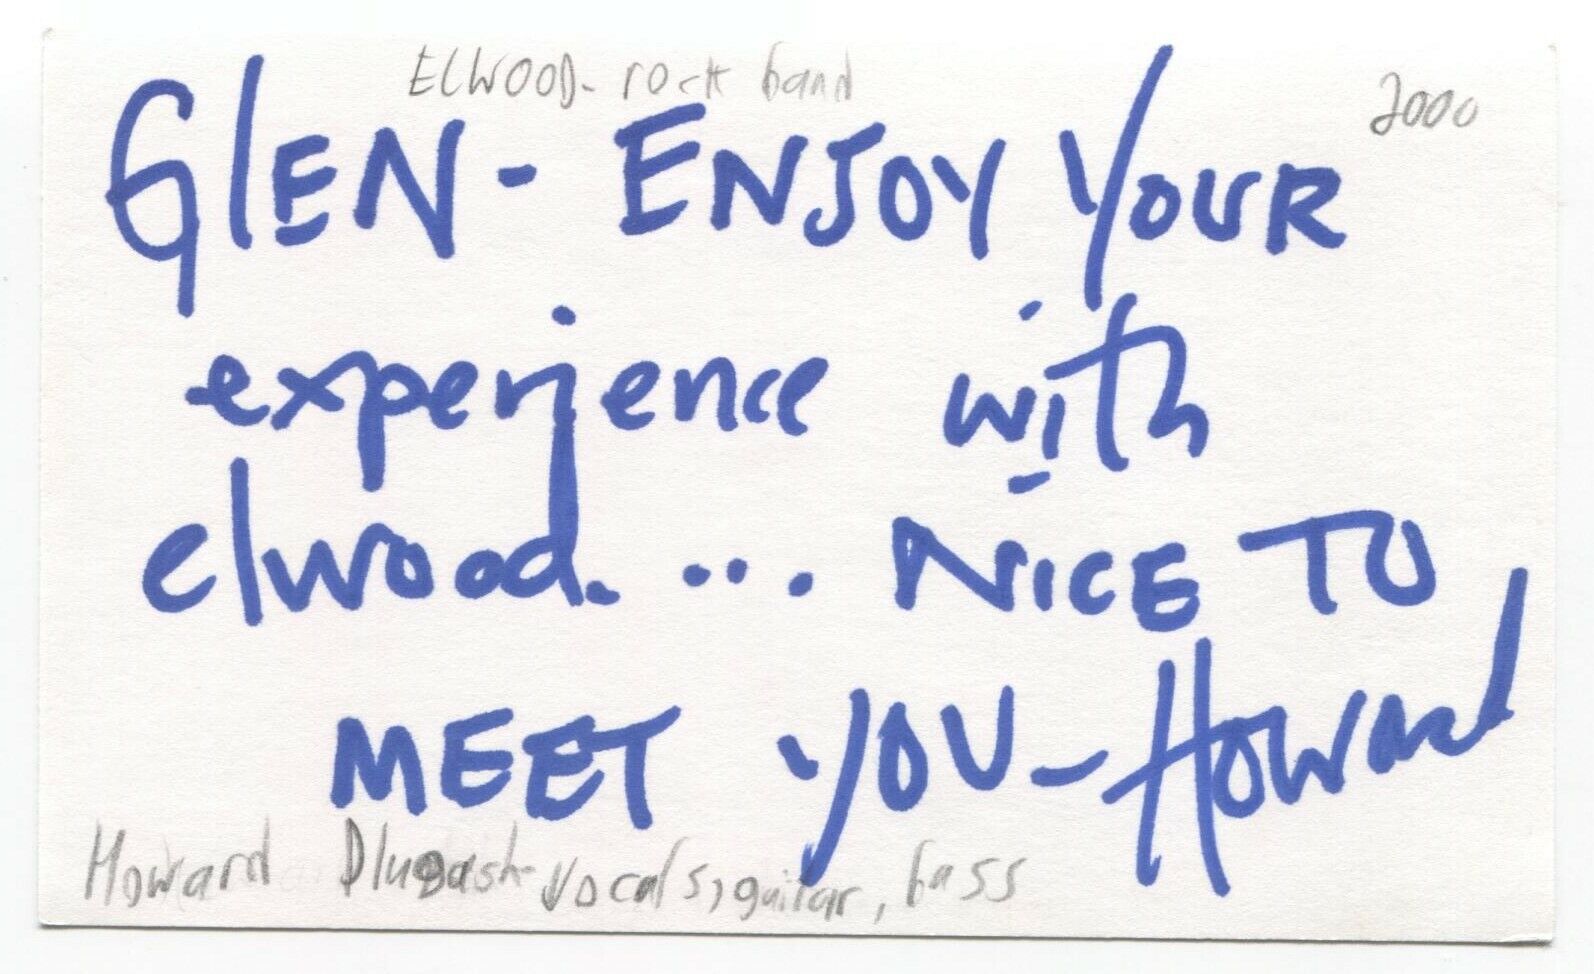 ELWOOD- rock band
2000
GlEN - ENJOY YOUR
experience with
elwood.... NICE TO
MEET YOU - Howard
Howard Dlugash- Vocals, guitar, bass